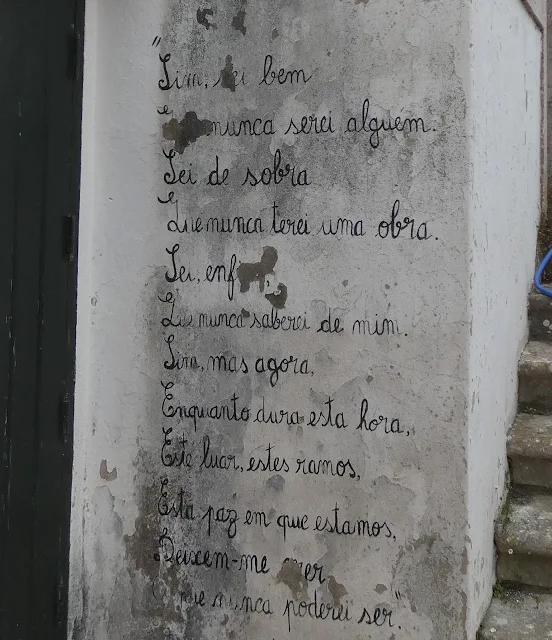 "Sim, sei bem
nunca serei alguém.
Sei de sobra
Que nunca terei uma obra.
Sei, enf
Que nunca saberei de mim.
Sim, mas agora,
Enquanto dura esta hora,
Este luar, estes ramos,
Esta paz em que estamos,
Deixem-me crer
que nunca poderei ser."